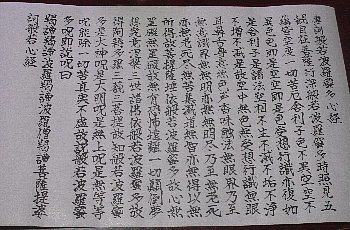 摩訶般若波羅蜜多心経
観自在菩薩行深般若波羅蜜多時照見五
蘊皆空度一切苦厄舎利子色不異空空不
異色色即是空空即是色受想行識亦復如
是舎利子是諸法空相不生不滅不垢不浄
不増不減是故空中無色無受想行識無眼
耳鼻舌身意無色声香味触法無眼界乃至
無意識界無無明亦無無明尽乃至無老死
亦無老死尽無苦集滅道無智亦無得以無
所得故菩提薩埵依般若波羅蜜多故心無
罣礙無罣礙故無有恐怖遠離一切顛倒夢
想究竟涅槃三世諸仏依般若波羅蜜多故
得阿耨多羅三藐三菩提故知般若波羅蜜
多是大神呪是大明呪是無上呪是無等等
呪能除一切苦真実不虚故説般若波羅蜜
多呪即説呪曰
羯諦羯諦波羅羯諦波羅僧羯諦菩提薩婆
訶般若心経